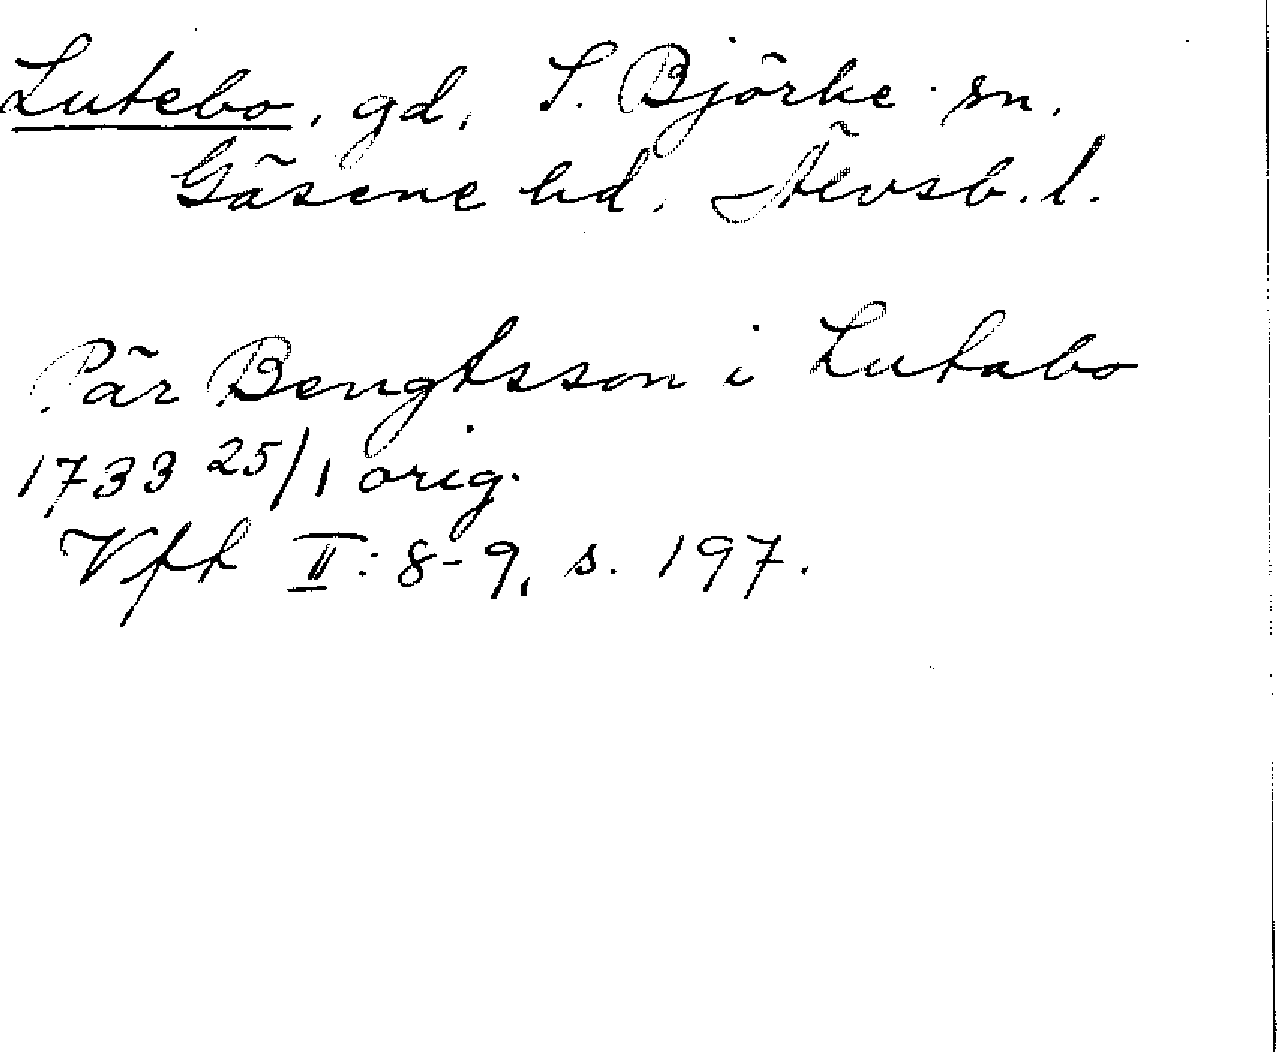 Lutebo, gd, S. Björke sn.
Gäsene hd. Älvsb. l.
Pär Bengtsson i Lutabo
1733 25/1 orig.
Vft II: 8-9, s. 197.